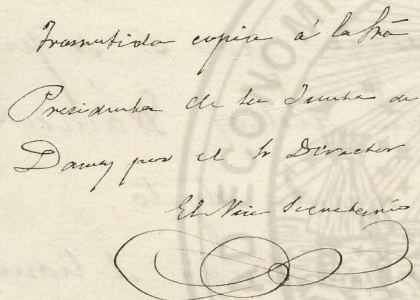 Trasmitida copia á la Srâ
Presidenta de la Junta de
Damas por el Sr Director
El Vice Secretario
DE ECONOM